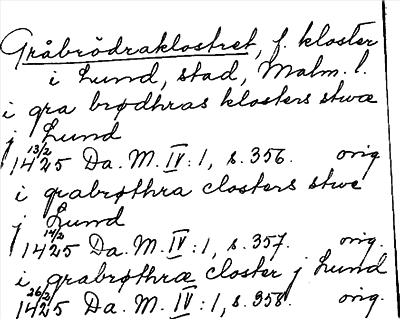 Gråbrödraklostret, f. kloster
i Lund, stad, Malm. l.
i gra brødhras klosters stwæ
j Lund
13/2 1425 Da. M. IV:1, s. 356. orig.
i grabrøthra closters stwe
j Lund
14/2 1425 Da. M. IV:1, s. 357. orig.
i grabrøthræ closter j Lund
26/2 1425 Da. M. IV:1, s. 358. orig.